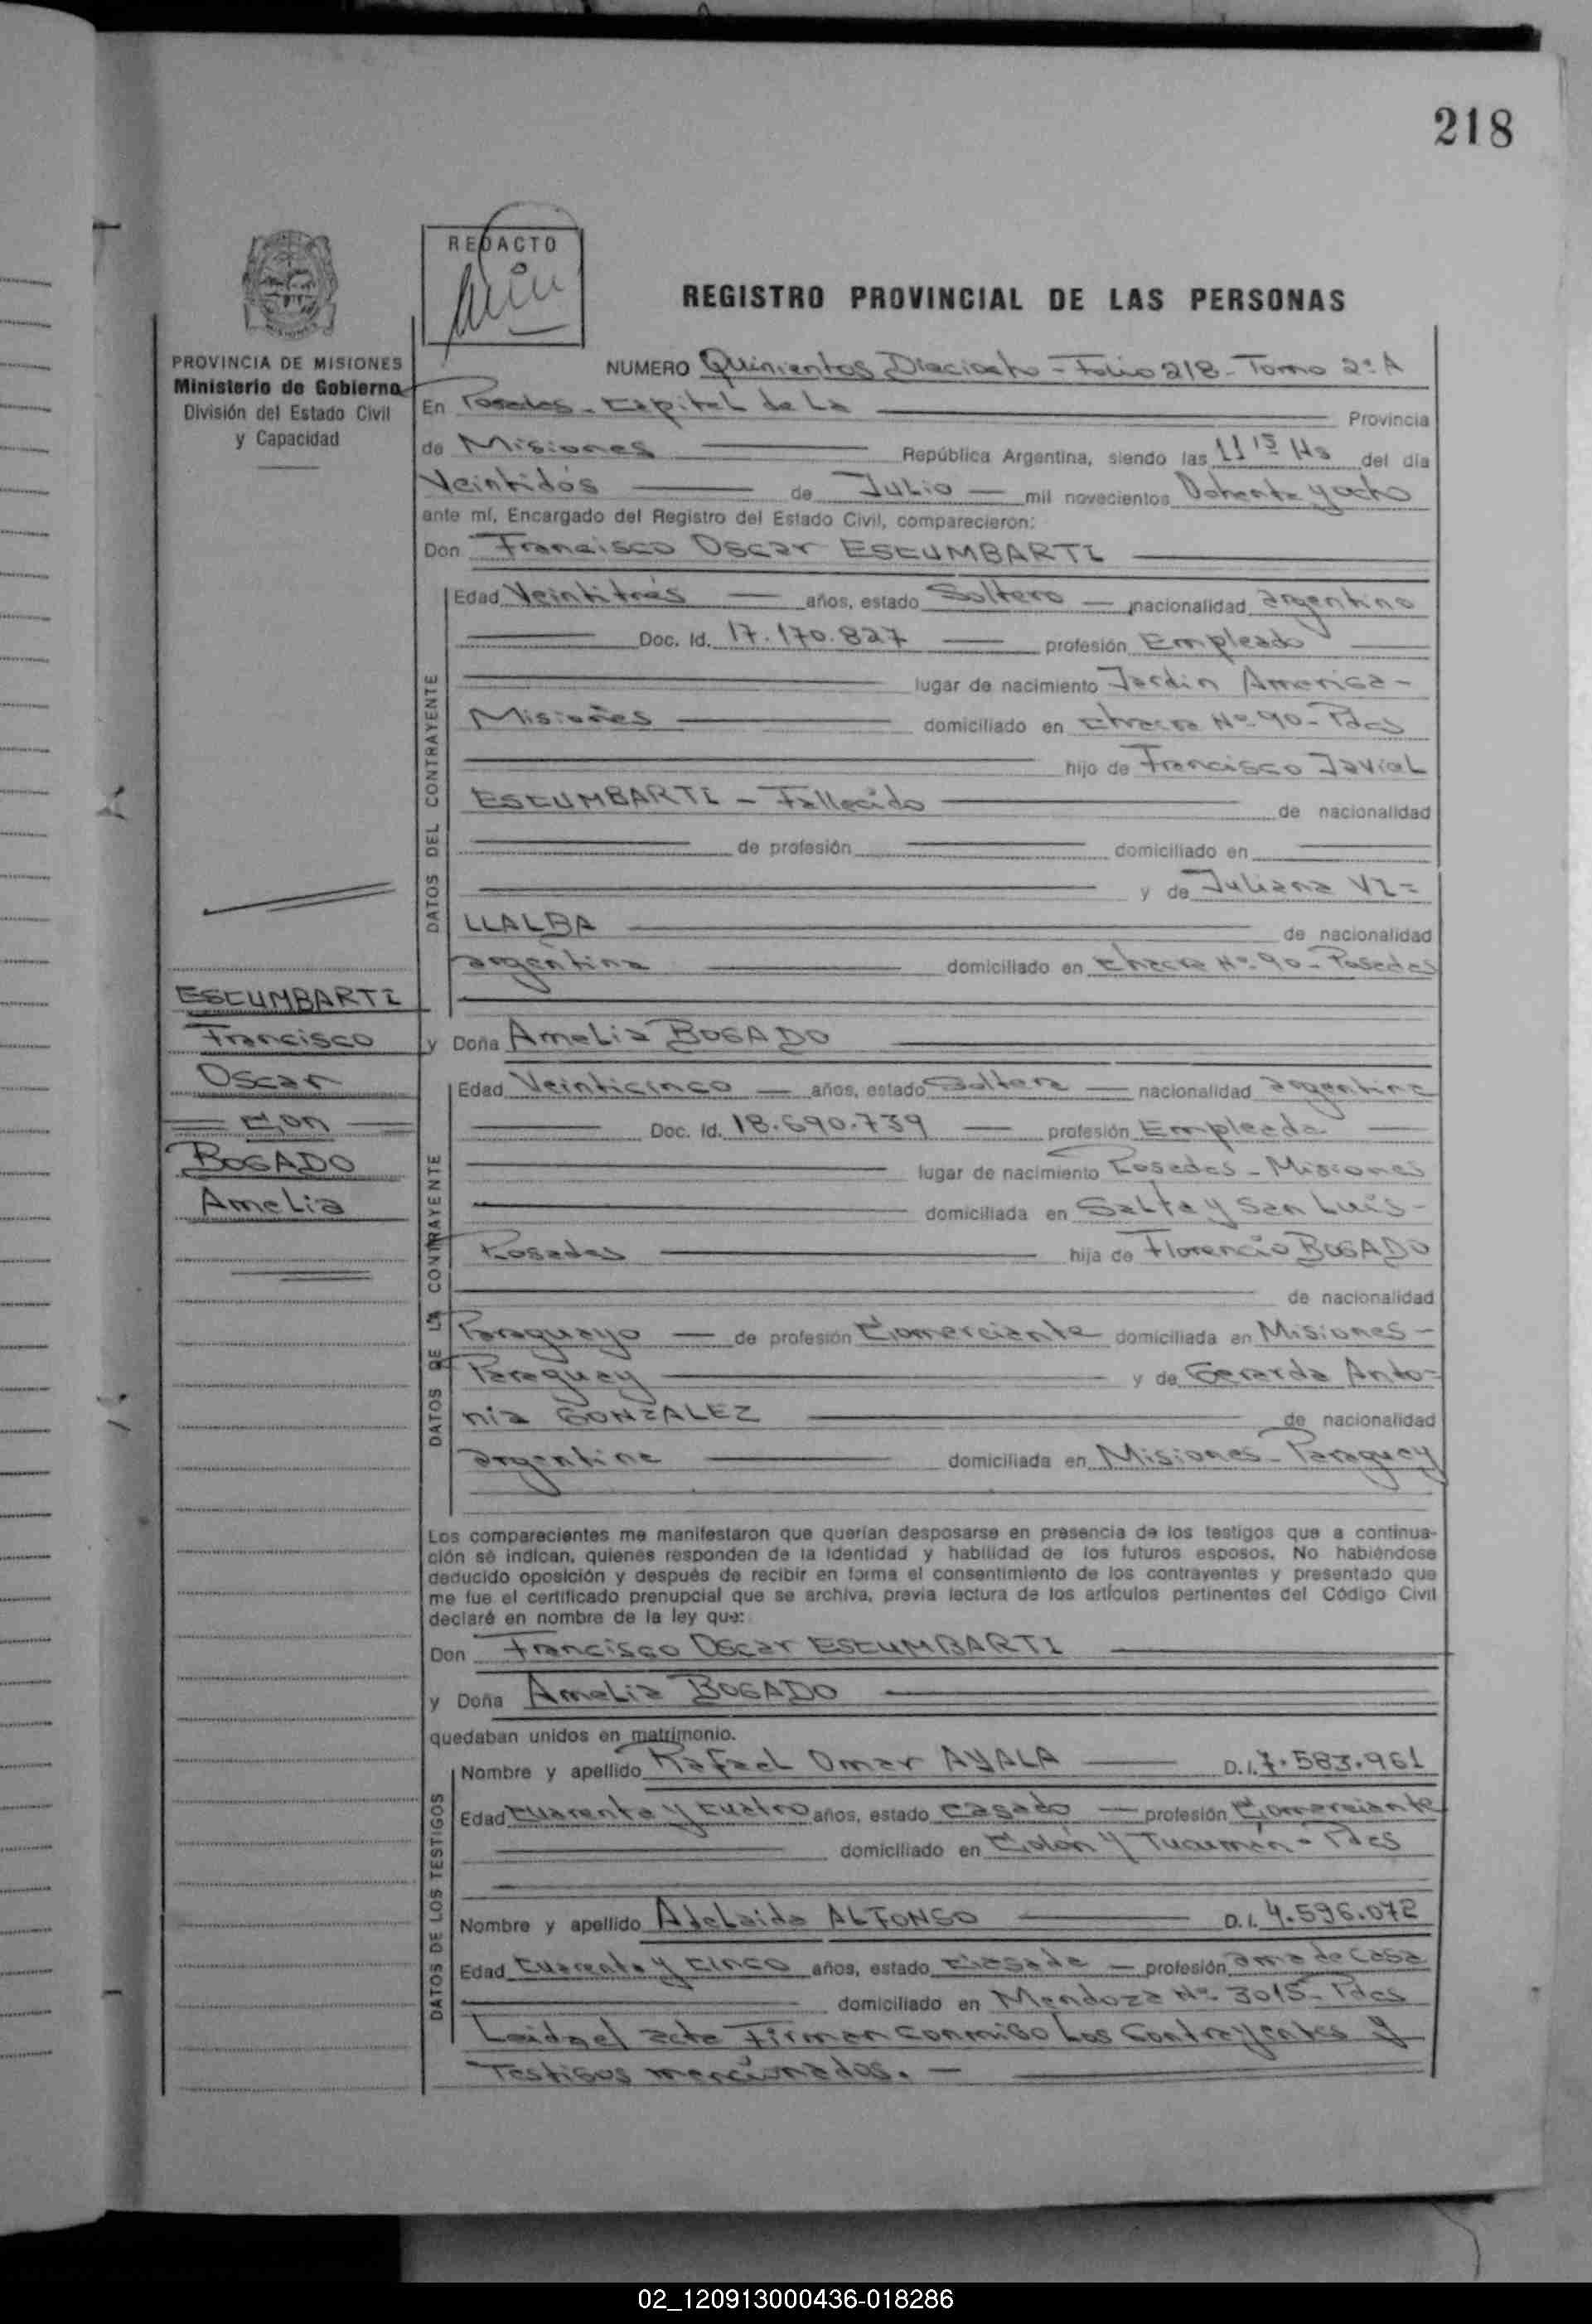 218
REDACTO
REGISTRO PROVINCIAL DE LAS PERSONAS
PROVINCIA DE MISIONES
Ministerio de Gobierno
División del Estado Civil
y Capacidad
NUMERO Quinientos Dieciocho - Folio 218 - Tomo 2º A
En Posadas - Capital de La Provincia
de Misiones República Argentina, siendo las 11 15 Hs del día
Veintidós de Julio mil novecientos Ochenta y ocho
ante mí, Encargado del Registro del Estado Civil, comparecieron:
Don Francisco Oscar ESCUMBARTI
DATOS DEL CONTRAYENTE
Edad Veintitrés años, estado Soltero nacionalidad argentino
Doc. Id. 17.170.827 profesión Empleado
lugar de nacimiento Jardín America -
Misiones domiciliado en Chacra Nº 90 - Pdas
hijo de Francisco
ESCUMBARTI - Fallecido de nacionalidad
de profesión domiciliado en
y de Juliana VI=
LLALBA de nacionalidad
argentina domiciliado en Chacra Nº 90 - Posadas
ESCUMBARTI
Francisco
Oscar
Con
BOGADO
Amelia
y Doña Amelia BOGADO
DATOS DE LA CONTRAYENTE
Edad Veinticinco años, estado Soltera nacionalidad argentina
Doc. Id. 18.690.739 profesión Empleada
lugar de nacimiento Posadas - Misiones
domiciliada en Salta y San Luis -
Posadas hija de Florencio BOGADO
de nacionalidad
Paraguayo de profesión Comerciante domiciliada en Misiones -
Paraguay y de Gerarda Anto=
nia GONZALEZ de nacionalidad
argentina domiciliada en Misiones - Paraguay
Los comparecientes me manifestaron que querían desposarse en presencia de los testigos que a continua-
ción se indican, quienes responden de la identidad y habilidad de los futuros esposos. No habiéndose
deducido oposición y después de recibir en forma el consentimiento de los contrayentes y presentado que
me fue el certificado prenupcial que se archiva, previa lectura de los artículos pertinentes del Código Civil
declaré en nombre de la ley que:
Don Francisco Oscar ESCUMBARTI
y Doña Amelia BOGADO
quedaban unidos en matrimonio.
DATOS DE LOS TESTIGOS
Nombre y apellido Rafael Omar AYALA D.I. 7.583.961
Edad Cuarenta y Cuatro años, estado Casado profesión Comerciante
domiciliado en Colón y Tucumán - Pdas
Nombre y apellido Adelaida ALFONSO D.I. 4.596.072
Edad Cuarenta y Cinco años, estado Casada profesión ama de Casa
domiciliado en Mendoza Nº 3015 - Pdas
Leida el acta Firman conmigo Los Contrayentes y
Testigos mencionados. -
02_120913000436-018286